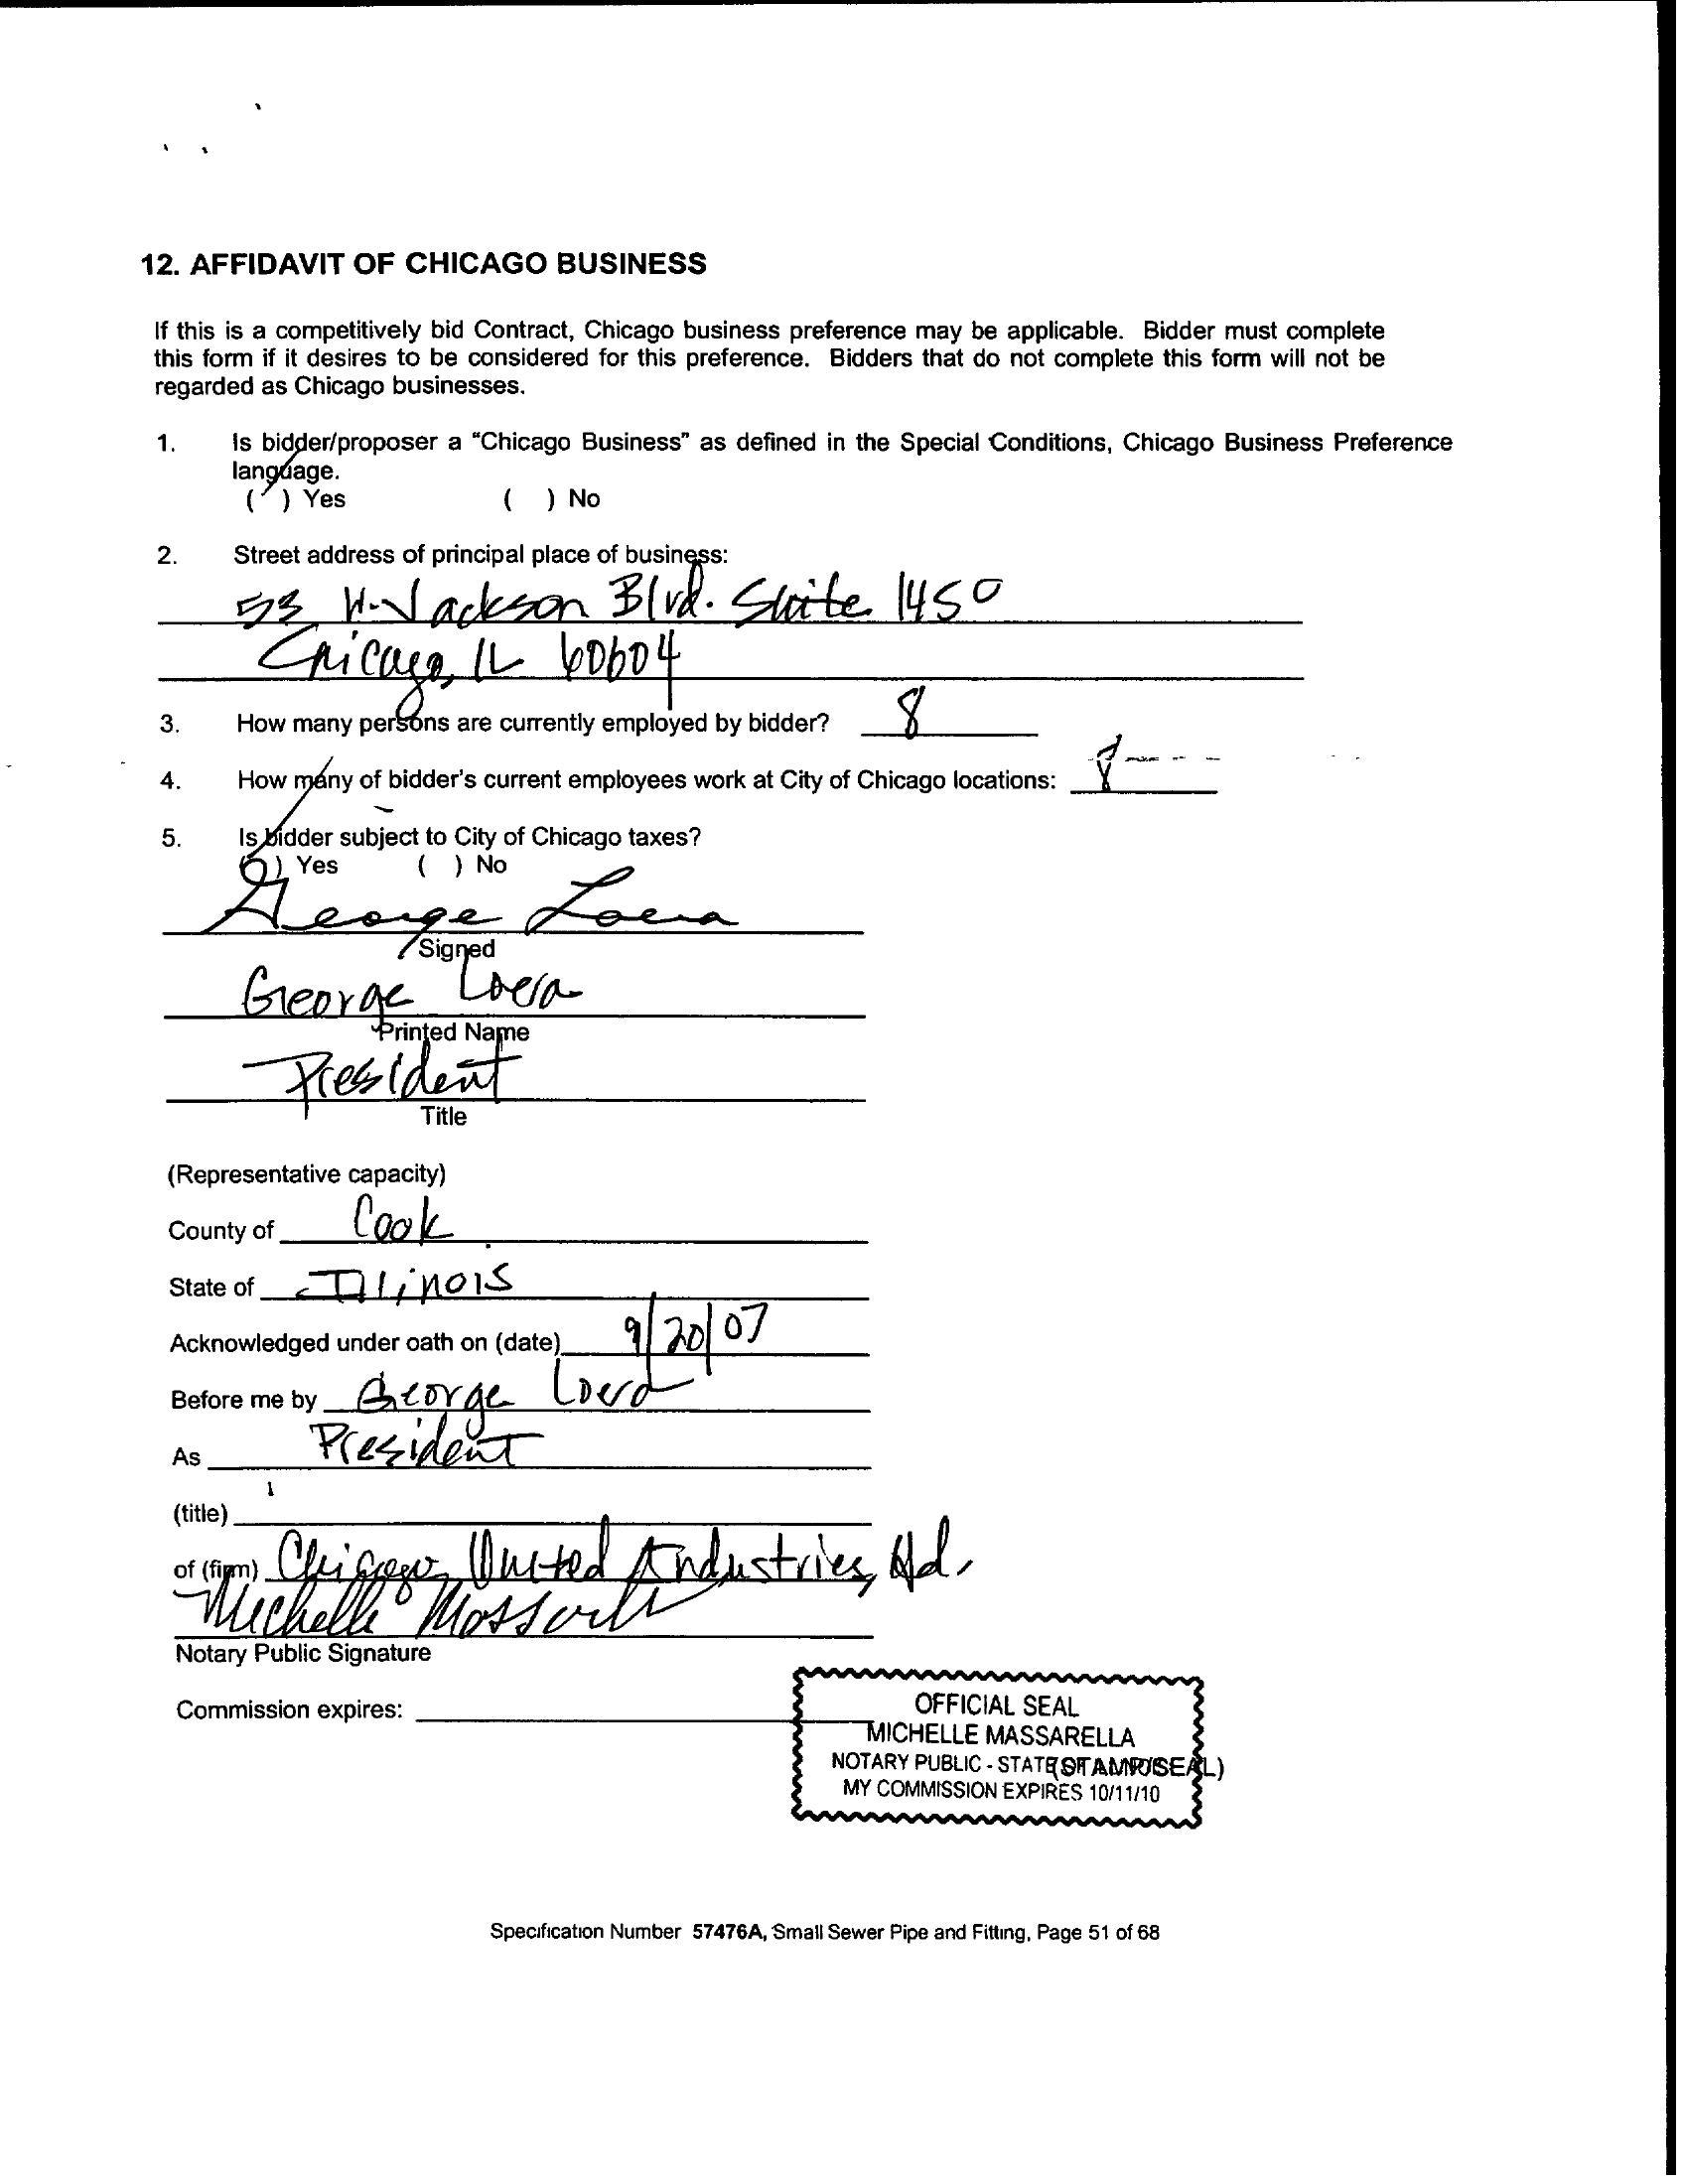 12. AFFIDAVIT OF CHICAGO BUSINESS
If this is a competitively bid Contract, Chicago business preference may be applicable. Bidder must complete
this form if it desires to be considered for this preference. Bidders that do not complete this form will not be
regarded as Chicago businesses.
1. Is bidder/proposer a “Chicago Business” as defined in the Special Conditions, Chicago Business Preference
language.
(✓) Yes ( ) No
2. Street address of principal place of business:
53 W. Jackson Blvd. Suite 1450
Chicago, IL 60604
3. How many persons are currently employed by bidder? 8
4. How many of bidder's current employees work at City of Chicago locations: 8
5. Is bidder subject to City of Chicago taxes?
(✓) Yes ( ) No
George Loera
Signed
George Loera
Printed Name
President
Title
(Representative capacity)
County of Cook
State of Illinois
Acknowledged under oath on (date) 9/20/07
Before me by George Loera
As President
(title)
of (firm) Chicago United Industries, Ltd.
Michelle Massarella
Notary Public Signature
Commission expires:
OFFICIAL SEAL
MICHELLE MASSARELLA
NOTARY PUBLIC - STATE (STAMP/SEAL)
MY COMMISSION EXPIRES 10/11/10
Specification Number 57476A, Small Sewer Pipe and Fitting, Page 51 of 68